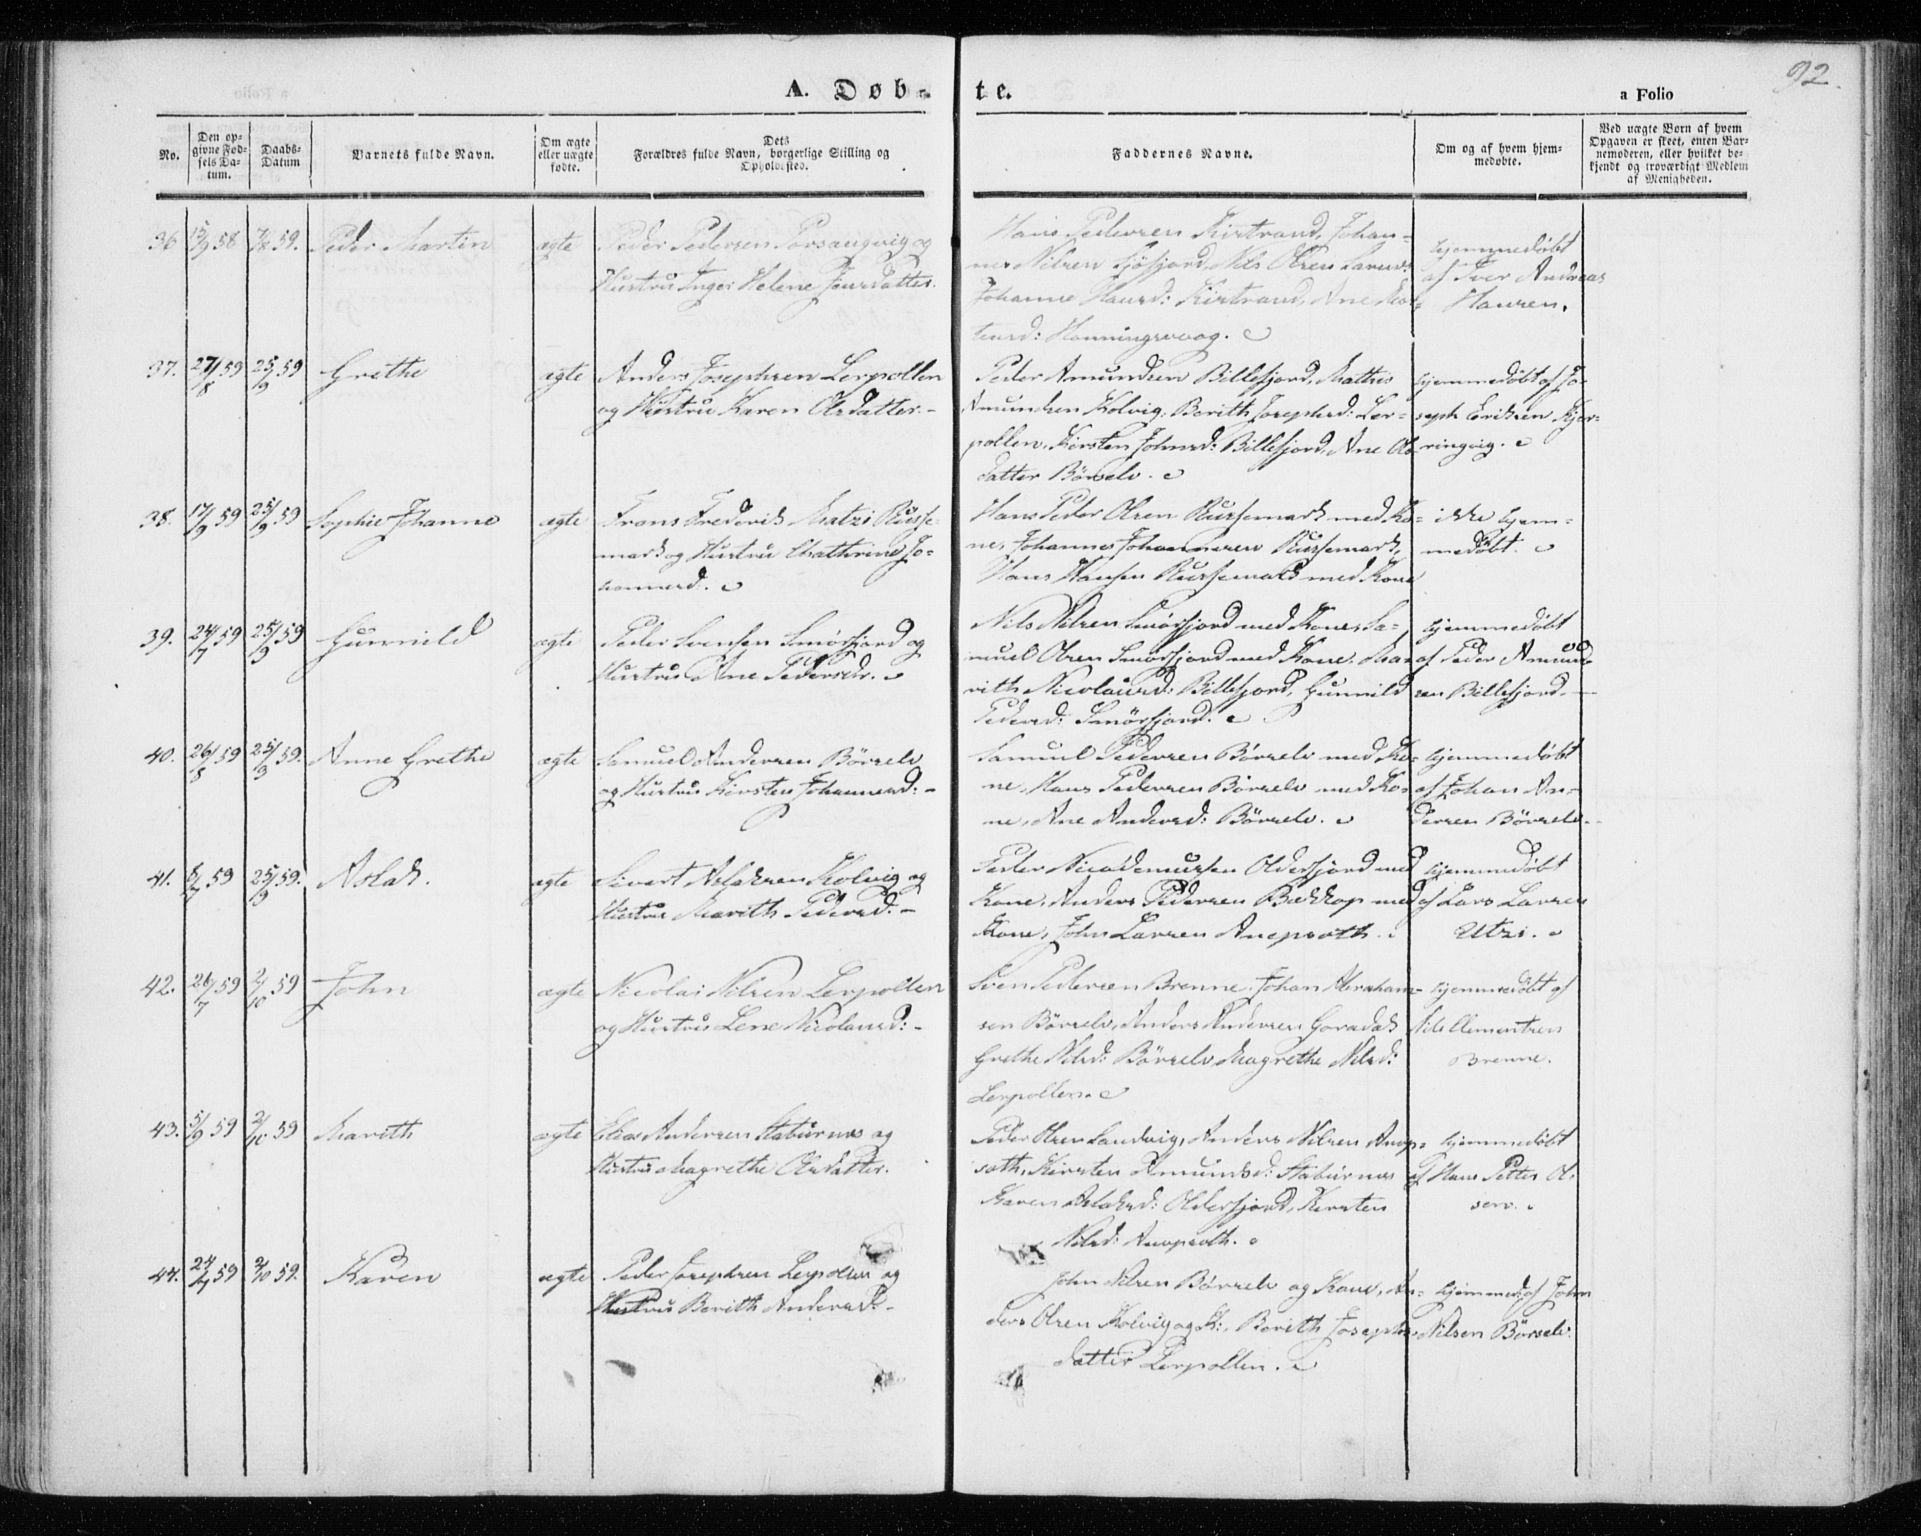 92.
A. Døb-
te.
a Folio
No.
Den op-
givne Fød-
sels Da-
tum.
Daabs-
Datum
Barnets fulde Navn.
Om ægte
eller uægte
fødte.
Dets
Forældres fulde Navn, borgerlige Stilling og
Opholdssted.
Faddernes Navne.
Om og af hvem hjem-
medøbte.
Ved uægte Børn af hvem
Opgaven er skeet, enten Bar-
nemoderen, eller hvilket be-
kjendt og troværdigt Medlem
af Menigheden.
36 13/9 58 7/8 59. Peder Martin ægte
Peder Pedersen Porsangvig og
Hustru Inger Helene
Hans Pedersen Kistrand, Johan-
nes Nilsen Nils Olsen
Johanne Hansd: Kistrand, Ane
Honningsvaag.
hjemmedøbt
af Iver Andreas
Hansen.
37. 27/8 59 25/9 59 Grethe ægte
Anders Josephsen Lerpollen
og Hustru Karen Olsdatter.-
Peder Amundsen Billefjord, Mathis
Amundsen Kolvig, Berith Josephsd: Ler-
pollen, Kirsten Johnsd: Billefjord, Ane Ols-
datter Börselv.
hjemmedöbt af Jo-
seph Eriksen Kjer-
ringvig.
38. 17/9 59 25/9 59 Sophie Johanne ægte
Frans Frederik Matzi Russe-
mark og Hustru Chathrine Jo-
hannesd.
Hans Peder Olsen Russemark med Ko-
ne, Johannes Johannesen Russemark,
Hans Hansen Russemark med Kone
ikke hjem-
medöbt.
39. 24/7 59 25/9 59 Gunnild ægte
Peder Svensen Smörfjord og
Hustru Ane Pedersdr.
Nils Nilsen Smörfjord med Kone, Sa-
muel Olsen Smörfjord med Kone, Ma-
rith Nicolaisd: Billefjord, Gunnild
Pedersd: Smörfjord.
hjemmedöbt
af Peder Amund-
sen Billefjord.
40. 26/8 59 25/9 59. Anne Grethe ægte
Samuel Andersen Börselv
og Hustru Kirsten Johannesd:-
Samuel Pedersen Börselv med Ko-
ne, Hans Pedersen Börselv med Ko-
ne, Ane Andersd: Börselv.
hjemmedöbt
af Johan An-
dersen Börselv.
41. 59 25/9 59. Aslak. ægte
Sivert Aslaksen Kolvig og
Hustru Marith Pedersd.-
Peder Nicodemussen Olderfjord med
Kone, Anders Pedersen med
Kone, John Larsen
hjemmedöbt
af Lars Larsen
Utzi.
42. 26/7 59 2/10 59 John ægte
Nicolai Nilsen Lerpollen
og Hustru Lene Nicolaisd:-
Sven Pedersen Brenne, Johan Abraham-
sen Börselv, Anders Andersen Goradak
Grethe Nilsd: Börselv Magrethe Nilsd:
Lerpollen.
hjemmedöbt af
Nils Clementsen
Brenne.
43. 5/9 59 2/10 59 Marith ægte
Elias Andersen Staburnæs og
Hustru Magrethe Olsdatter.
Peder Olsen Sandvig, Anders Nilsen
Kirsten Amundsd: Staburnæs
Karen Aslaksd: Olderfjord, Kirsten
Nilsd:
hjemmedöbt
af Hans Petter Ol-
sen.
44. 59 2/10 59. Karen ægte
Peder Josephsen Lerpollen og
Hustru Berith Andersd.-
John Nilsen Börselv og Kone, An-
ders Olsen Kolvig og K:, Berith Josephs-
datter Lerpollen.
hjemmed. af John
Nilsen Börselv.